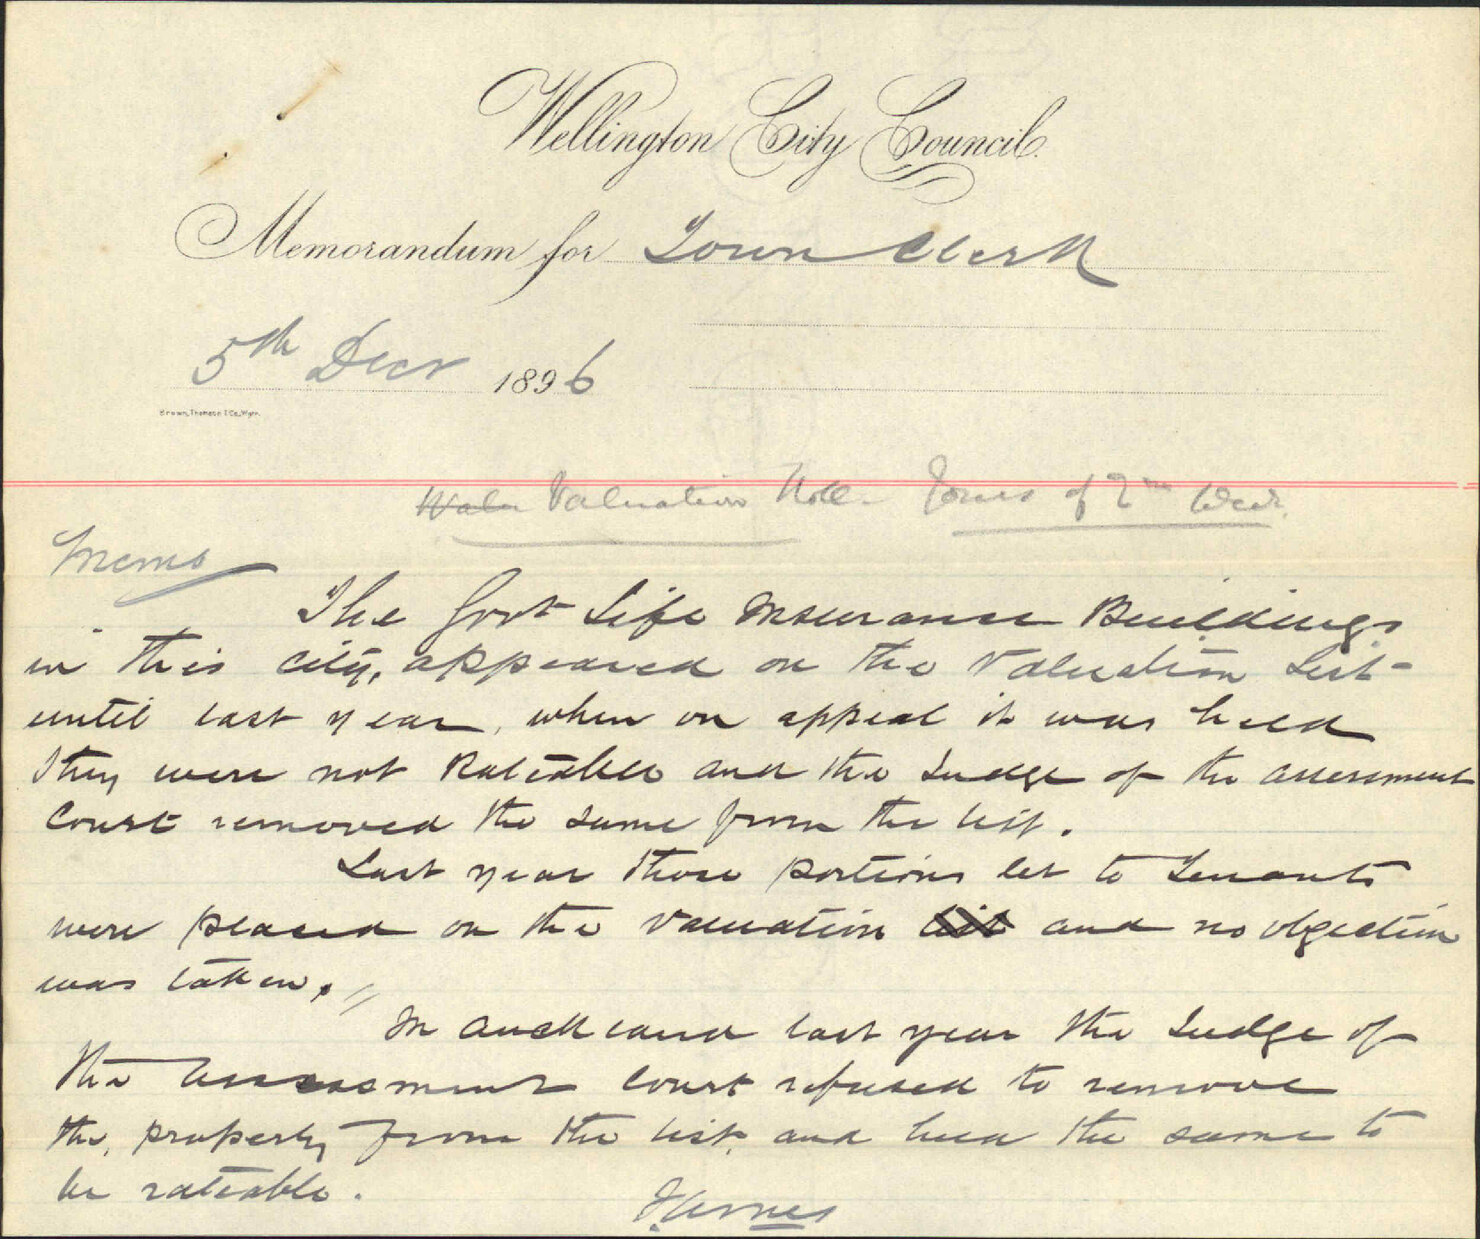 Wellington City Council.
Memorandum for Town Clerk
5th Decr 1896
Brown, Thomson & Co., Wgtn.
Valuation Roll Yours of 2nd Decr.
Memo
The Govt Life Insurance Buildings
in this city, appeared on the Valuation List
until last year, when on appeal it was held
they were not Rateable and the Judge of the assessment
Court removed the same from the list.
Last year those portions let to Tenants
were placed on the valuation list and no objection
was taken.
In Auckland last year the Judge of
the Assessment Court refused to remove
the property from the list and held the same to
be rateable.